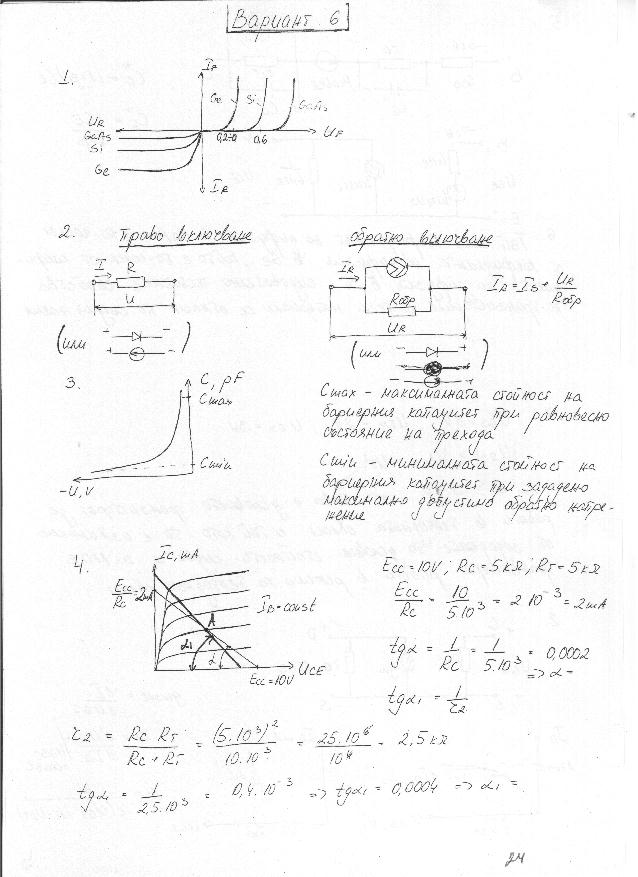 Вариант 6
1.
IF
Ge Si GaAs
UR
GaAs
Si
Ge
0,6 UF
IR
2. Право включване
обратно включване
I R
U
IR
Rобр
UR
IR = IS + UR/Rобр
(или + − )
− +
(или − + )
− +
3.
C, pF
Cmax
Cmin
-U, V
Cmax - максималната стойност на
бариерния капацитет при равновесно
състояние на прехода
Cmin - минималната стойност на
бариерния капацитет при зададено
максимално допустимо обратно напре-
жение
4.
IC, mA
Ecc/Rc = 2mA
A
IB = const
α1 α
Ecc = 10V UCE
Ecc = 10V ; Rc = 5кΩ ; Rт = 5кΩ
Ecc/Rc = 10/5.10³ = 2.10⁻³ = 2mA
tgα = 1/Rc = 1/5.10³ = 0,0002
=> α =
tgα1 = 1/τ2
τ2 = Rc Rт/Rc + Rт = (5.10³)²/10.10³ = 25.10⁶/10⁴ = 2,5кΩ
tgα1 = 1/2,5.10³ = 0,4.10⁻³ => tgα1 = 0,0004 => α1 =
24